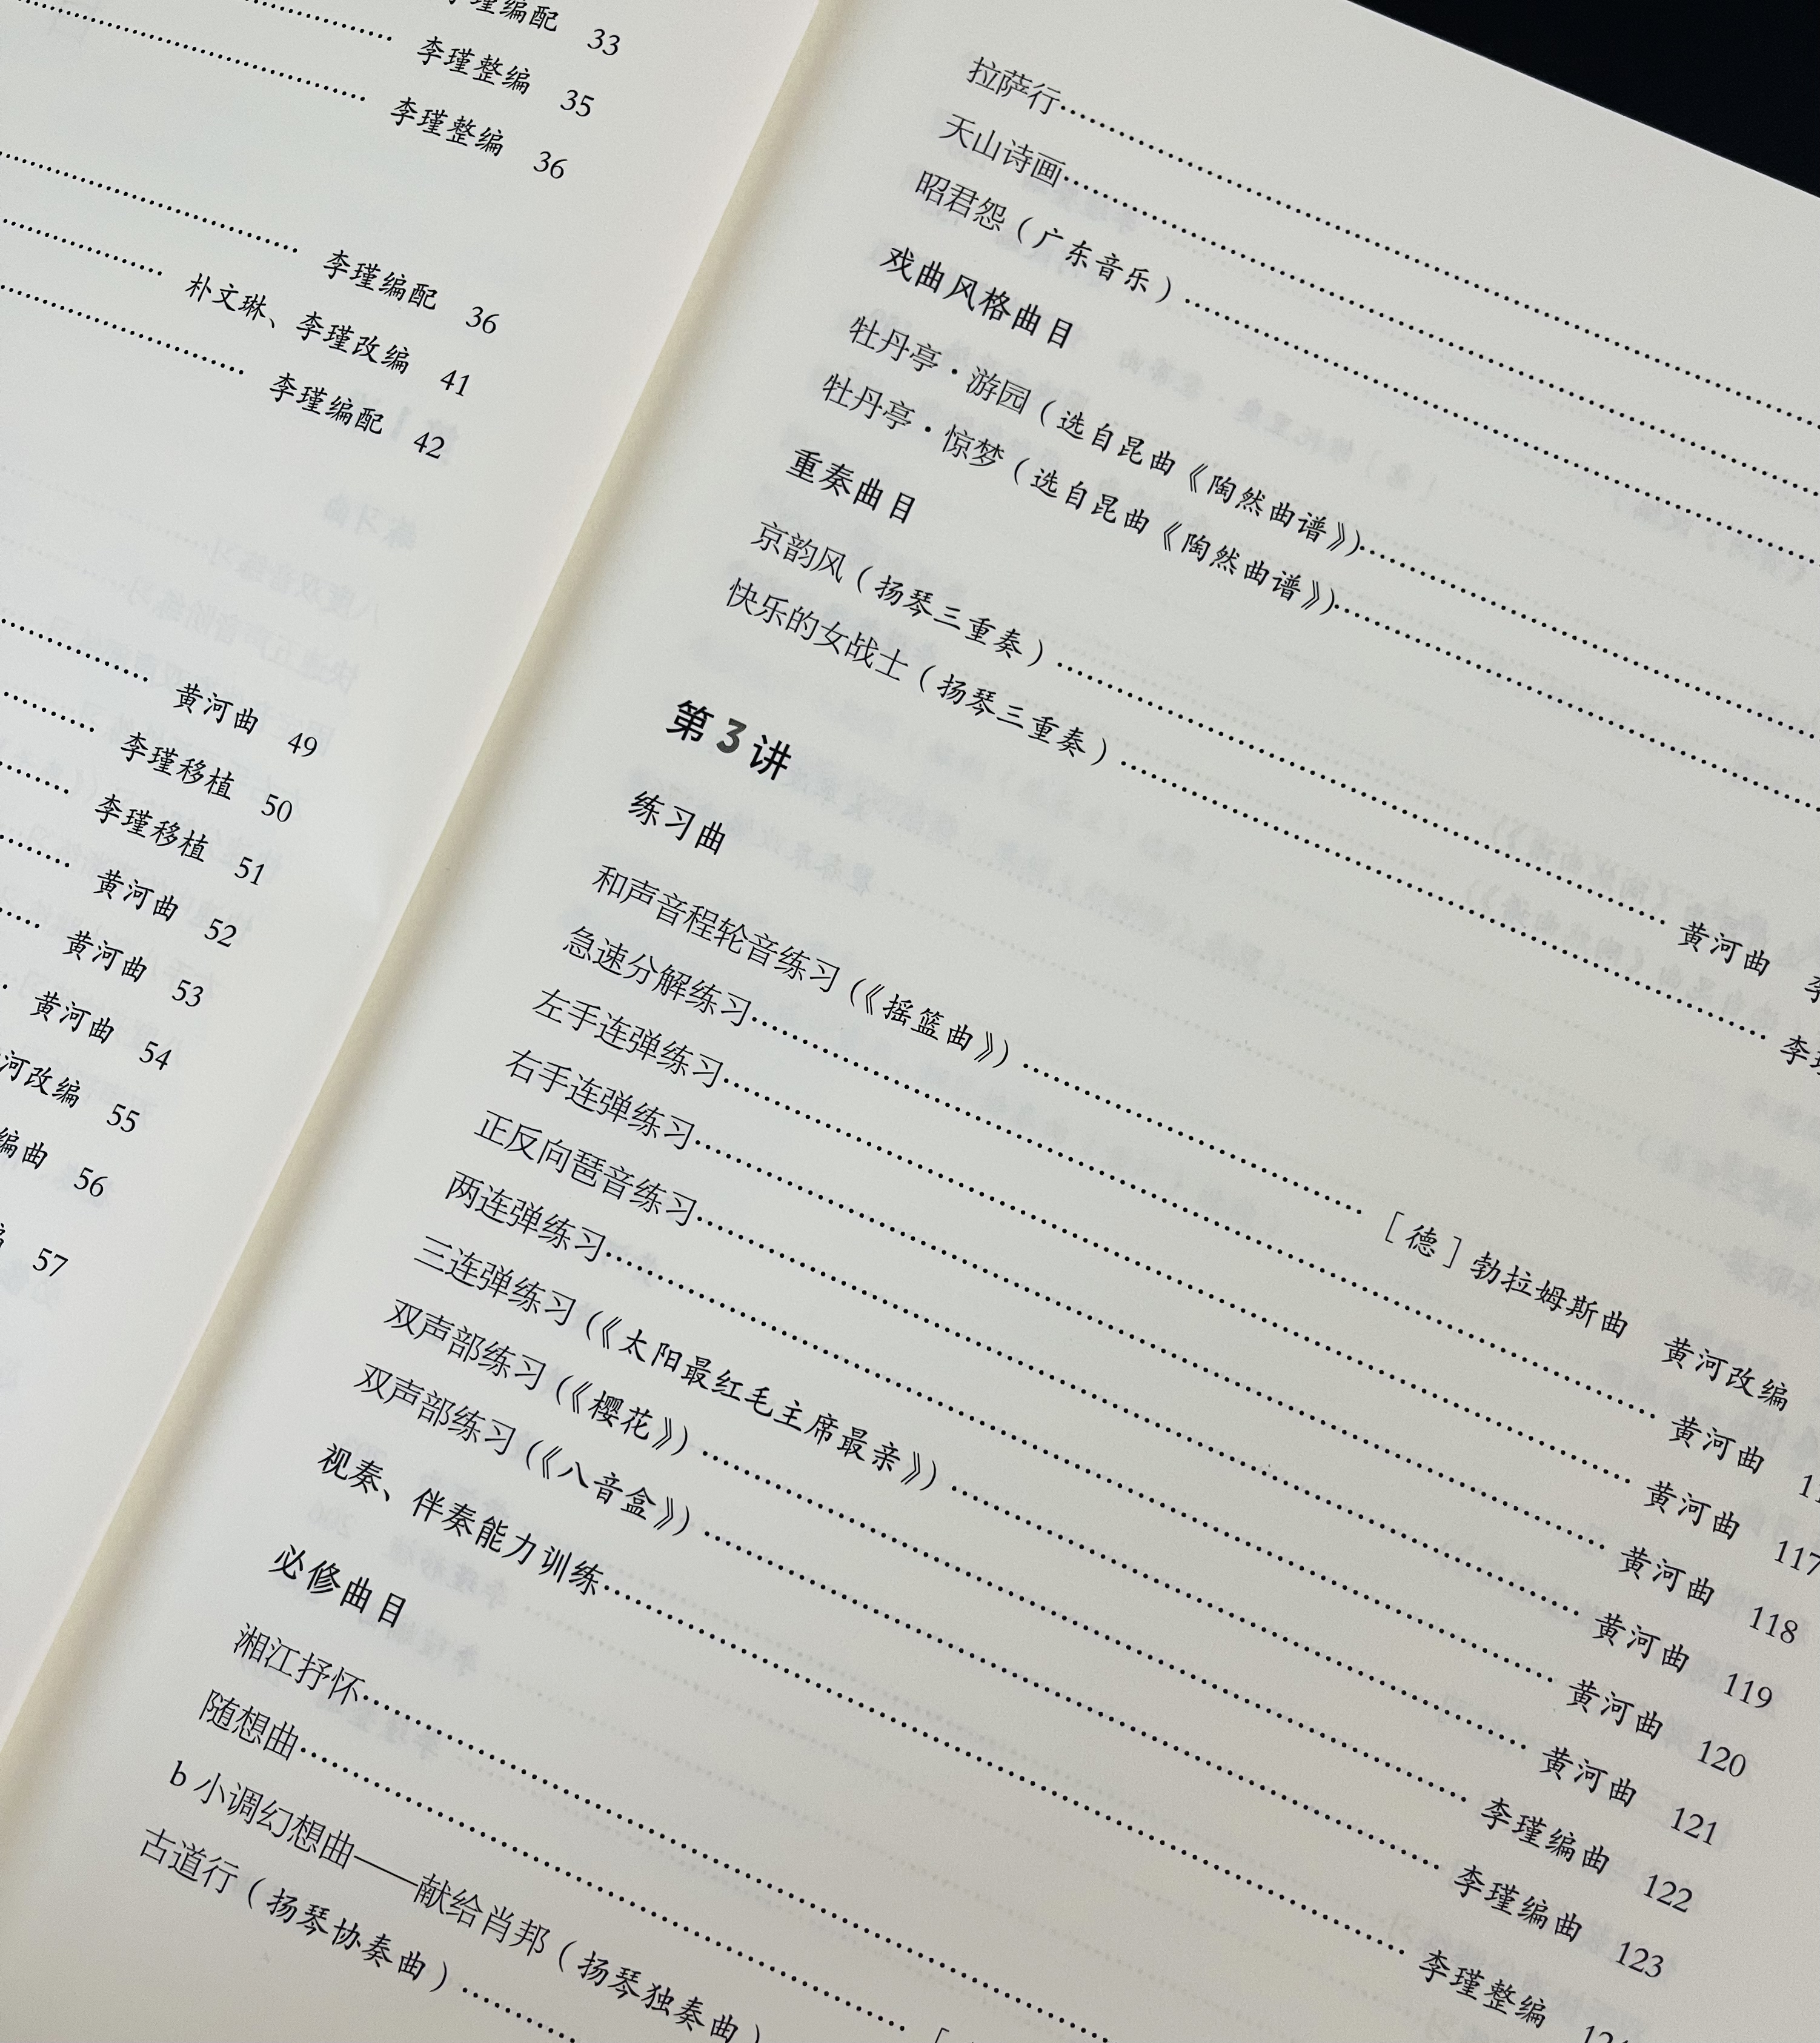 李瑾编配 33
李瑾整编 35
李瑾整编 36
李瑾编配 36
朴文琳、李瑾改编 41
李瑾编配 42
黄河曲 49
李瑾移植 50
李瑾移植 51
黄河曲 52
黄河曲 53
黄河曲 54
河改编 55
编曲 56
57
拉萨行
天山诗画
昭君怨（广东音乐）
戏曲风格曲目
牡丹亭·游园（选自昆曲《陶然曲谱》）
牡丹亭·惊梦（选自昆曲《陶然曲谱》）
重奏曲目
京韵风（扬琴三重奏） 黄河曲 李
快乐的女战士（扬琴三重奏） 李瑾
第3讲
练习曲
和声音程轮音练习（《摇篮曲》） ［德］勃拉姆斯曲 黄河改编
急速分解练习 黄河曲 11
左手连弹练习 黄河曲 117
右手连弹练习 黄河曲 118
正反向琶音练习 黄河曲 119
两连弹练习 黄河曲 120
三连弹练习（《太阳最红毛主席最亲》） 黄河曲 121
双声部练习（《樱花》） 李瑾编曲 122
双声部练习（《八音盒》） 李瑾编曲 123
视奏、伴奏能力训练 李瑾整编
必修曲目
湘江抒怀
随想曲 ［
b小调幻想曲——献给肖邦（扬琴独奏曲）
古道行（扬琴协奏曲）